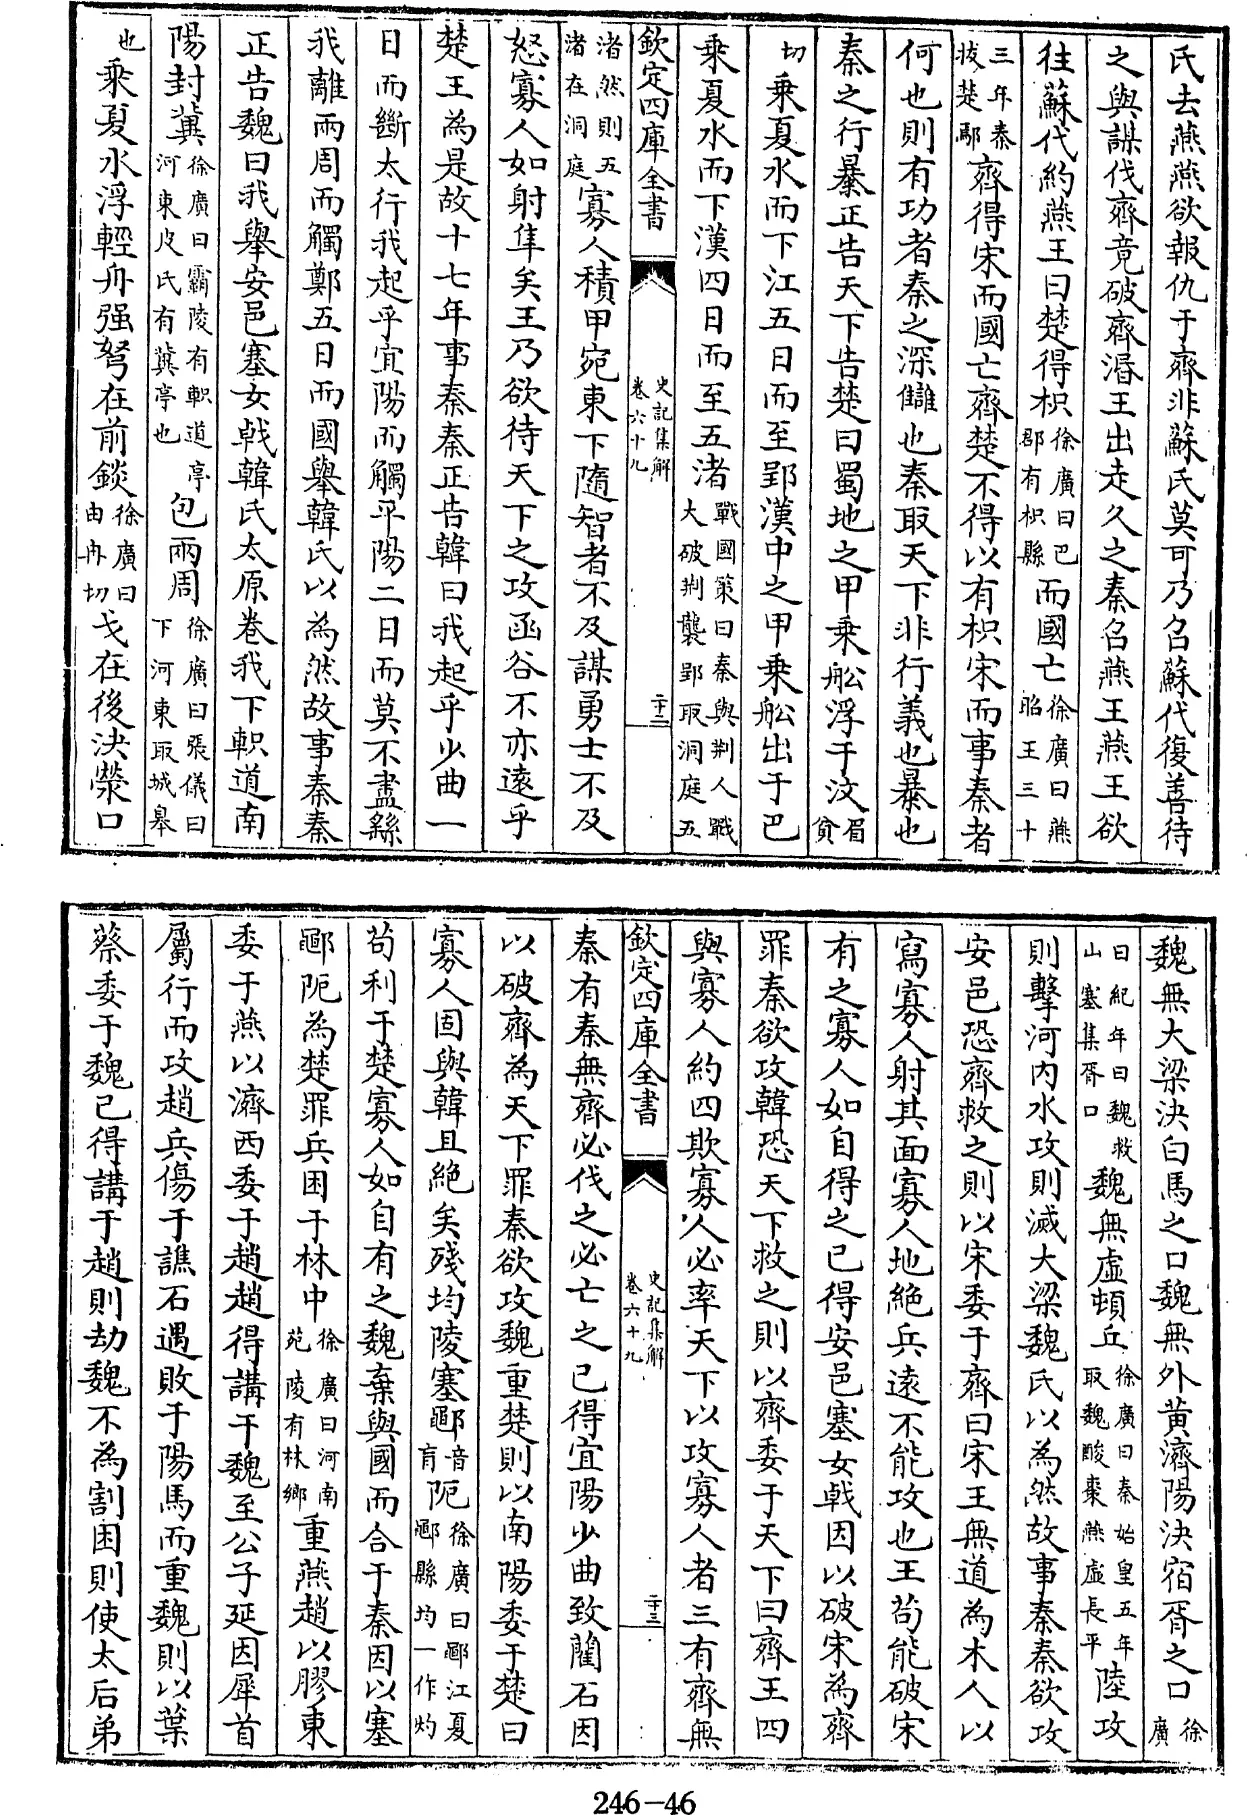 氏去燕燕欲報仇于齊非蘇氏莫可乃召蘇代復善待
之與謀伐齊竟破齊湣王出走久之秦召燕王燕王欲
往蘇代約燕王曰楚得枳徐廣曰巴郡有枳縣而國亡徐廣曰燕昭王三十
三年秦拔楚鄢齊得宋而國亡齊楚不得以有枳宋而事秦者
何也則有功者秦之深讎也秦取天下非行義也暴也
秦之行暴正告天下告楚曰蜀地之甲乗舩浮于汶眉貧
切乗夏水而下江五日而至郢漢中之甲乗舩出于巴
乗夏水而下漢四日而至五渚戰國策曰秦與荆人戰大破荆襲郢取洞庭五
欽定四庫全書 史記集解 卷六十九 二十二
渚然則五渚在洞庭寡人積甲宛東下隨智者不及謀勇士不及
怒寡人如射隼矣王乃欲待天下之攻函谷不亦遠乎
楚王為是故十七年事秦秦正告韓曰我起乎少曲一
日而斷太行我起乎宜陽而觸平陽二日而莫不盡繇
我離兩周而觸鄭五日而國舉韓氏以為然故事秦秦
正告魏曰我舉安邑塞女戟韓氏太原卷我下軹道南
陽封冀徐廣曰霸陵有軹道亭河東皮氏有冀亭也包兩周徐廣曰張儀曰下河東取城皋
也乗夏水浮輕舟强弩在前錟徐廣曰由冉切戈在後決滎口
魏無大梁決白馬之口魏無外黄濟陽決宿胥之口徐廣
曰紀年曰魏救山塞集胥口魏無虛頓丘徐廣曰秦始皇五年取魏酸棗燕虛長平陸攻
則擊河内水攻則滅大梁魏氏以為然故事秦秦欲攻
安邑恐齊救之則以宋委于齊曰宋王無道為木人以
寫寡人射其面寡人地絶兵遠不能攻也王茍能破宋
有之寡人如自得之已得安邑塞女戟因以破宋為齊
罪秦欲攻韓恐天下救之則以齊委于天下曰齊王四
與寡人約四欺寡人必率天下以攻寡人者三有齊無
欽定四庫全書 史記集解 卷六十九 二十三
秦有秦無齊必伐之必亡之已得宜陽少曲致藺石因
以破齊為天下罪秦欲攻魏重楚則以南陽委于楚曰
寡人固與韓且絶矣殘均陵塞鄳音肓阨徐廣曰鄳江夏鄳縣均一作灼
茍利于楚寡人如自有之魏棄與國而合于秦因以塞
鄳阨為楚罪兵困于林中徐廣曰河南苑陵有林鄉重燕趙以膠東
委于燕以濟西委于趙趙得講于魏至公子延因犀首
屬行而攻趙兵傷于譙石遇敗于陽馬而重魏則以葉
蔡委于魏已得講于趙則劫魏不為割困則使太后弟
246-46